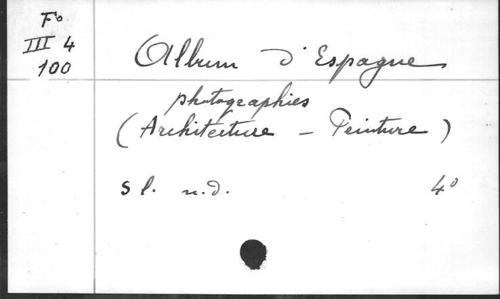 Fo
III 4
100
Album d'Espagne
photographies
(Architecture – Peinture)
s l. n.d. 4o